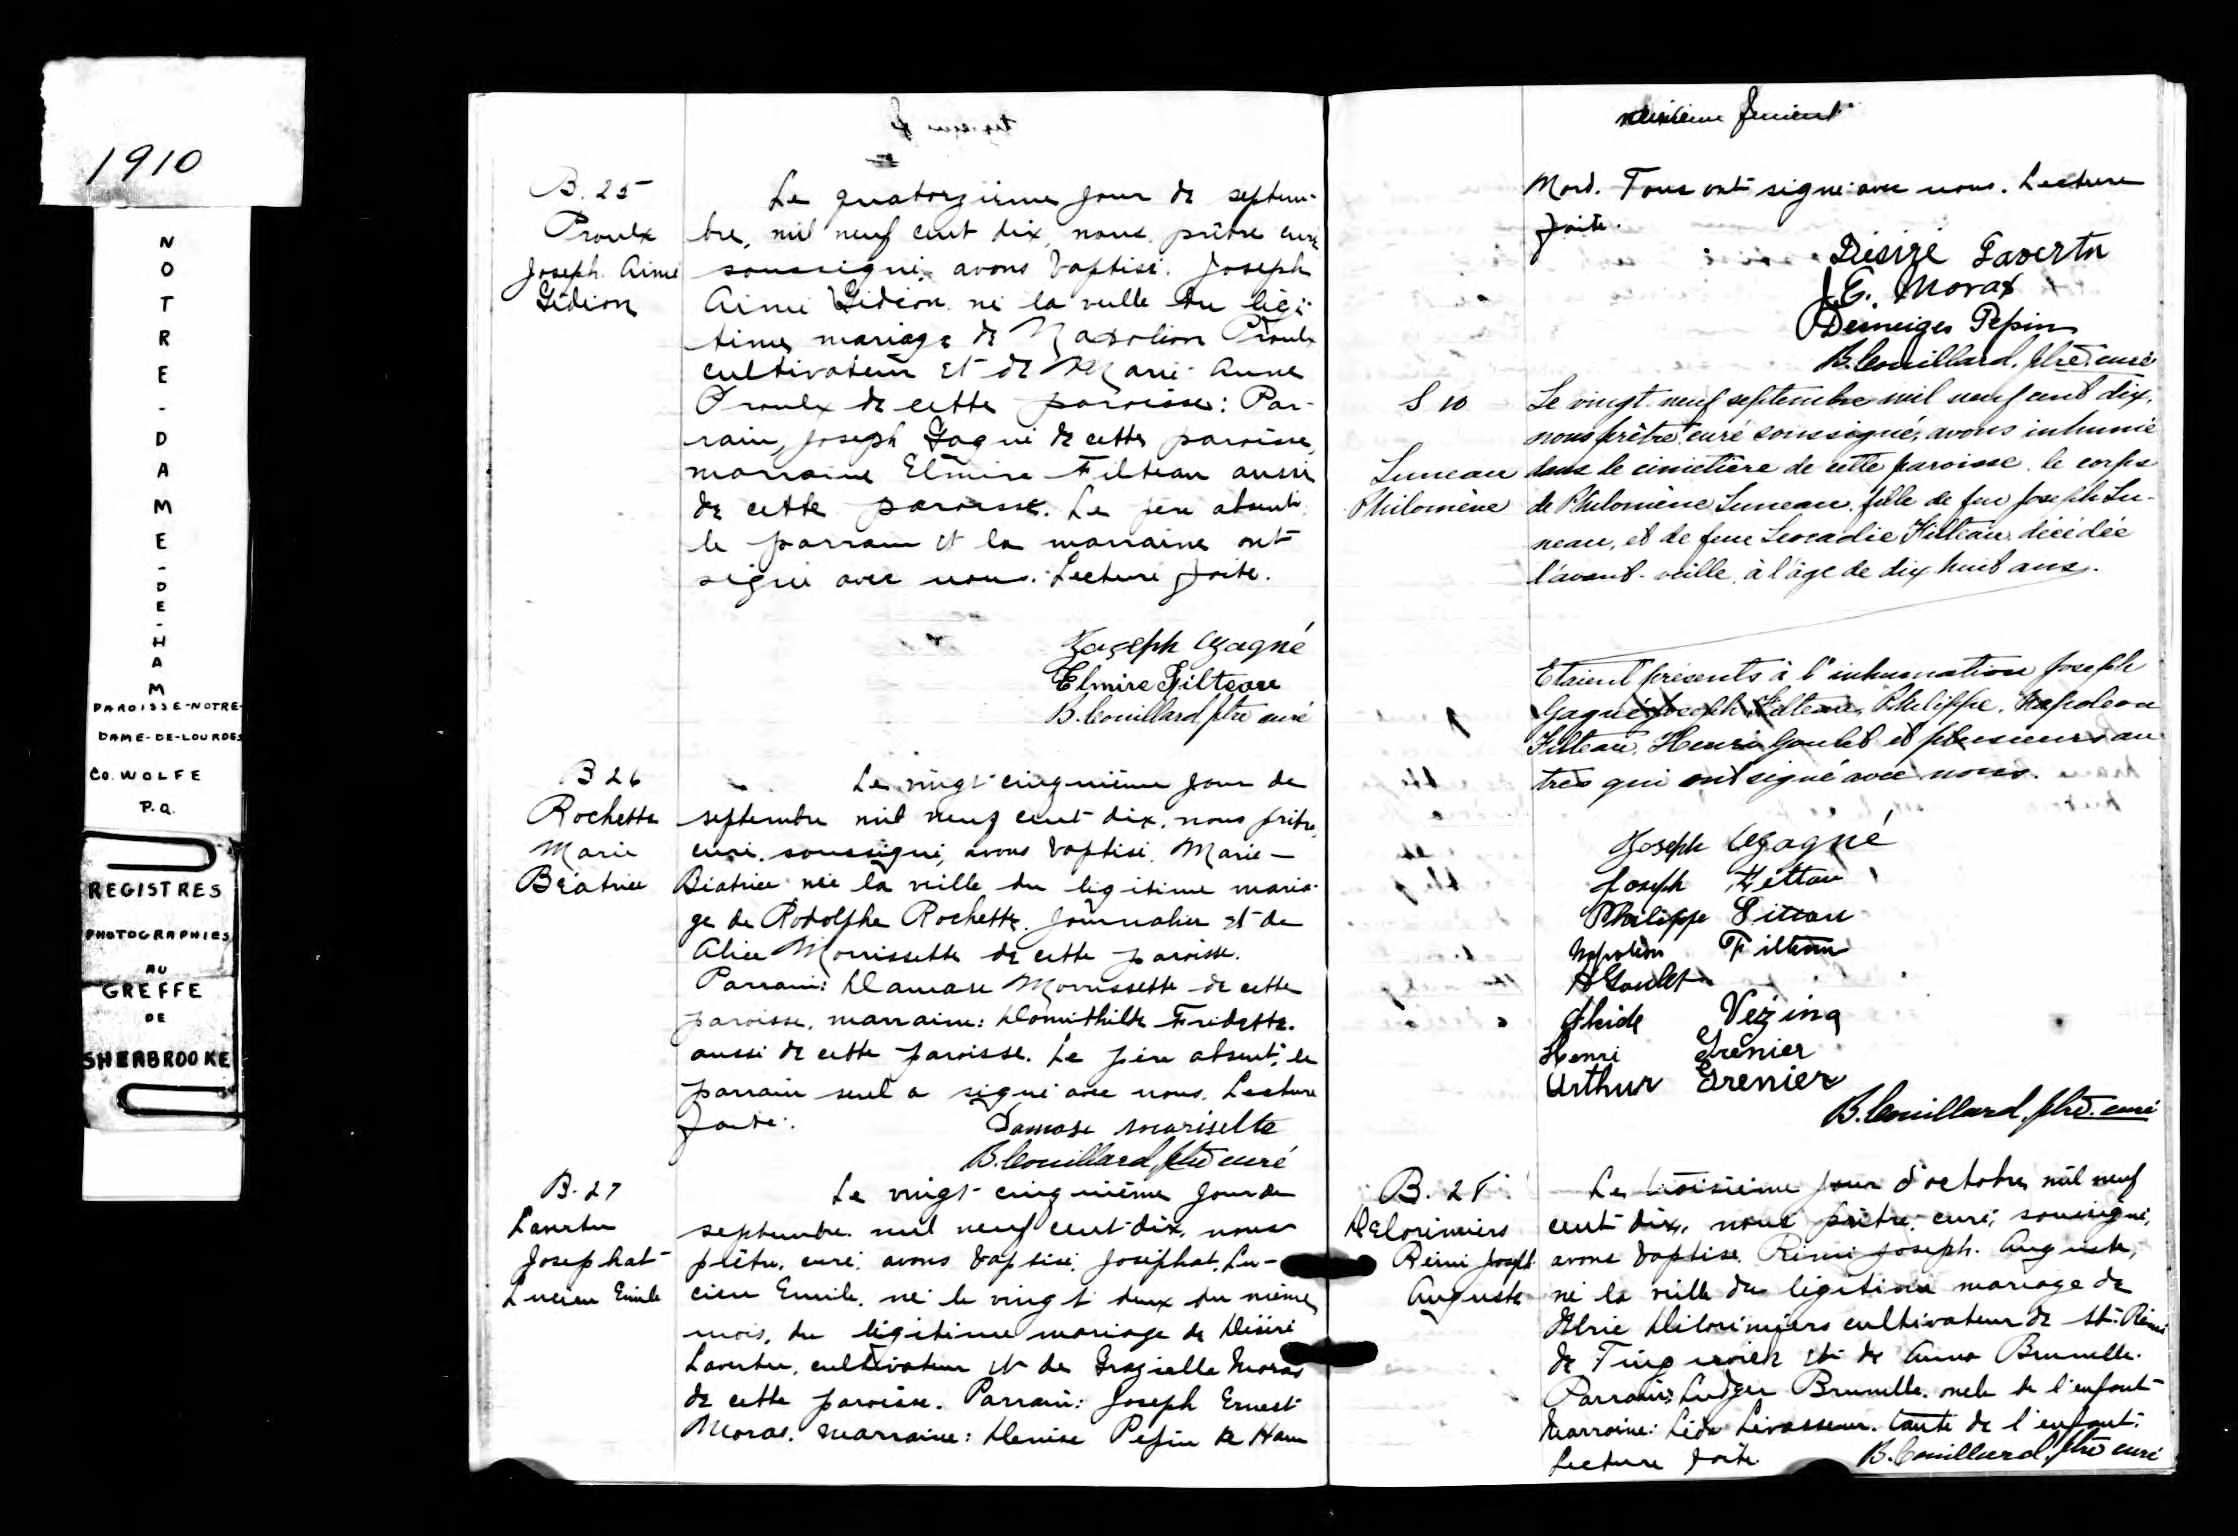 1910
NOTRE-DAME-DE-HAM
PAROISSE-NOTRE-
DAME-DE-LOURDES
CO. WOLFE
P.Q.
REGISTRES
PHOTOGRAPHIES
AU
GREFFE
DE
SHERBROOKE
B. 25
Proulx
Joseph Aimé
Gédéon
Le quatorzième jour de septem-
bre, mil neuf cent dix, nous, prêtre curé
soussigné, avons baptisé, Joseph
Aimé Gédéon né la veille du légi-
time mariage de Napoléon Proulx
cultivateur et de Marie-Anne
Proulx de cette paroisse: Par-
rain, Joseph Gagné de cette paroisse,
marraine Elmire Filteau aussi
de cette paroisse. Le père absent,
le parrain et la marraine ont
signé avec nous. Lecture faite.
Joseph Gagné
Elmire Filteau
B. Couillard ptre curé
B 26
Rochette
Marie
Béatrice
Le vingt-cinquième jour de
septembre mil neuf cent dix, nous prêtre,
curé, soussigné, avons baptisé, Marie-
Béatrice née la veille du légitime maria-
ge de Rodolphe Rochette, journalier et de
Alice Morrissette de cette paroisse.
Parrain: Damase Morrissette de cette
paroisse, marraine: Domithilde Fridette.
aussi de cette paroisse. Le père absent, le
parrain seul a signé avec nous. Lecture
faite.
Damase morisette
B. Couillard, ptre curé
B. 27
Lavertu
Josephat
Lucien Emile
Le vingt-cinquième jour de
septembre mil neuf cent-dix, nous
prêtre, curé, avons baptisé, Joséphat, Lu-
cien Emile, né le vingt deux du même
mois, du légitime mariage de Désiré
Lavertu, cultivateur et de Grazielle Moras
de cette paroisse. Parrain: Joseph Ernest
Moras. Marraine: Denise Pepin de Ham
feuillet
Nord. Tous ont signé avec nous. Lecture
faite.
Désiré Lavertu
J.E. Moras
Démeiges Pepin
B. Couillard, ptre curé
S 10
Luneau
Philomène
Le vingt-neuf septembre mil neuf cent dix,
nous prêtre, curé soussigné, avons inhumé
dans le cimetière de cette paroisse, le corps
de Philomène Luneau, fille de feu Joseph Lu-
neau, et de feue Léocadie Filteau, décédée
l'avant-veille, à l'âge de dix huit ans.
Etaient présents à l'inhumation Joseph
Gagné, Joseph Filteau, Philippe, Napoléon
Filteau, Henri Goulet et plusieurs au-
tres qui ont signé avec nous.
Joseph Gagné
Joseph Filteau
Philippe Filteau
Napoléon Filteau
H Goulet
Vézina
Henri Grenier
Arthur Grenier
B. Couillard, ptre. curé
B. 28
Delorimiers
Rémi Joseph
Auguste
Le troisième jour d'octobre mil neuf
cent-dix, nous prêtre, curé, soussigné,
avons baptisé, Rémi Joseph Auguste,
né la veille du légitime mariage de
Delorimiers cultivateur de St. Rémi
de Tingwick et de Anna Brunelle.
Parrain: Ludger Brunelle, oncle de l'enfant
Marraine: Léda Levasseur, tante de l'enfant.
Lecture faite.
B. Couillard, ptre curé